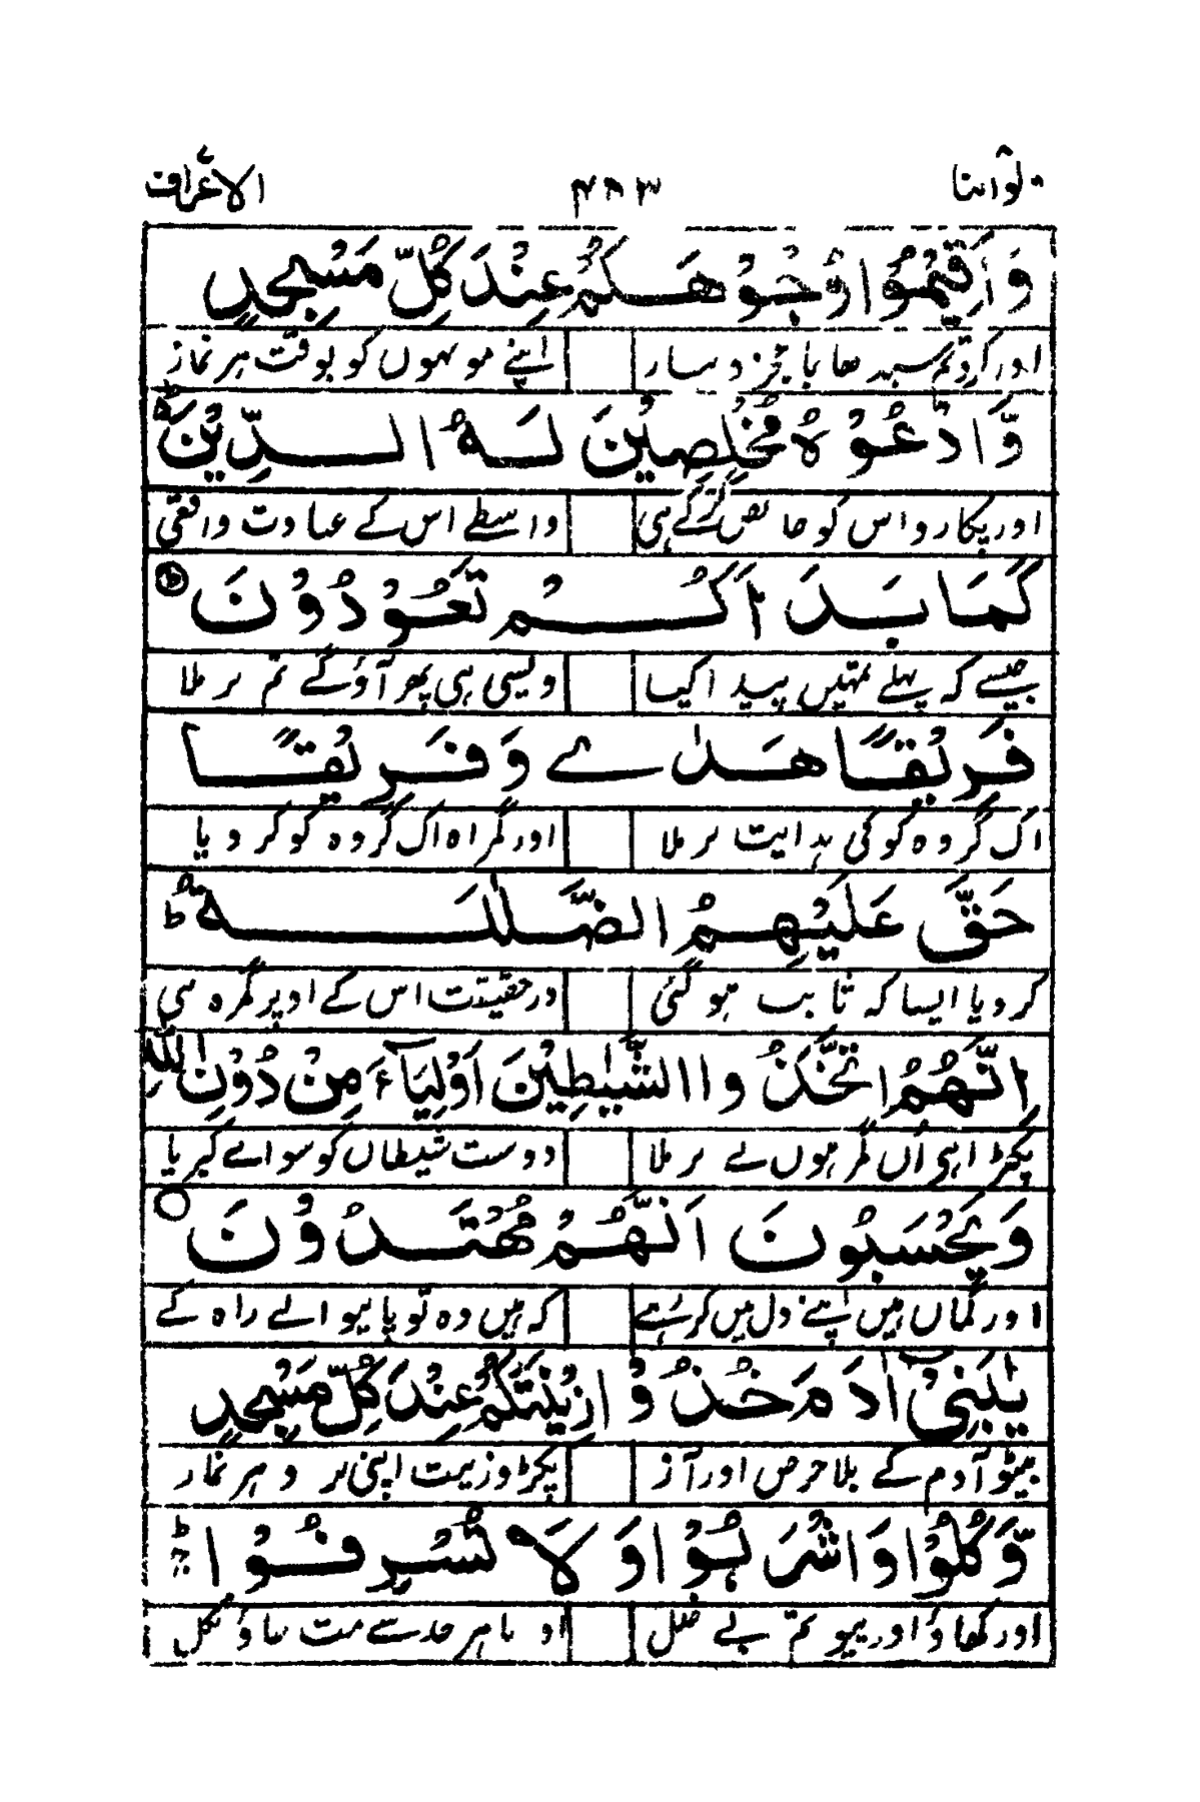 ولواننا ٨ ٤٨٣ الاعراف ٧
وَاَقِيْمُوْا وُجُوْهَكُمْ عِنْدَ كُلِّ مَسْجِدٍ
اور کرو تم سیدھا با عجز و اپنے مونہوں کو بوقت ہر نماز
وَّادْعُوْهُ مُخْلِصِيْنَ لَهُ الدِّيْنَ ؕ
اور پکارو اس کو خالص کرکے ہی واسطے اس کے عبادت واقعی
كَمَا بَدَاَكُمْ تَعُوْدُوْنَ ؕ
جیسے کہ پہلے تمہیں پیدا کیا ویسی ہی پھر آؤگے تم بر ملا
فَرِيْقًا هَدٰى وَفَرِيْقًا
اک گروہ کو کی ہدایت بر ملا اور گمراہ اک گروہ کو کر دیا
حَقَّ عَلَيْهِمُ الضَّلٰلَةُ ؕ
کر دیا ایسا کہ ثابت ہو گئی درحقیقت اس کے اوپر گمرہ ہی
اِنَّهُمُ اتَّخَذُوا الشَّيٰطِيْنَ اَوْلِيَآءَ مِنْ دُوْنِ اللّٰهِ
پکڑا ہی اُن گمرہوں نے بر ملا دوست شیطاں کو سوائے کبریا
وَيَحْسَبُوْنَ اَنَّهُمْ مُّهْتَدُوْنَ ○
اور گماں ہیں اپنے دل میں کر رہے کہ ہیں وہ تو پا نیوالے راہ کے
يٰبَنِيْۤ اٰدَمَ خُذُوْا زِيْنَتَكُمْ عِنْدَ كُلِّ مَسْجِدٍ
بیٹو آدم کے بلا حرص اور آز پکڑو زینت اپنی نزد ہر نماز
وَّكُلُوْا وَاشْرَبُوْا وَلَا تُسْرِفُوْا ؕ
اور کھاؤ اور پیو تم بے خلل او باہر حد سے مت جاؤ نکل